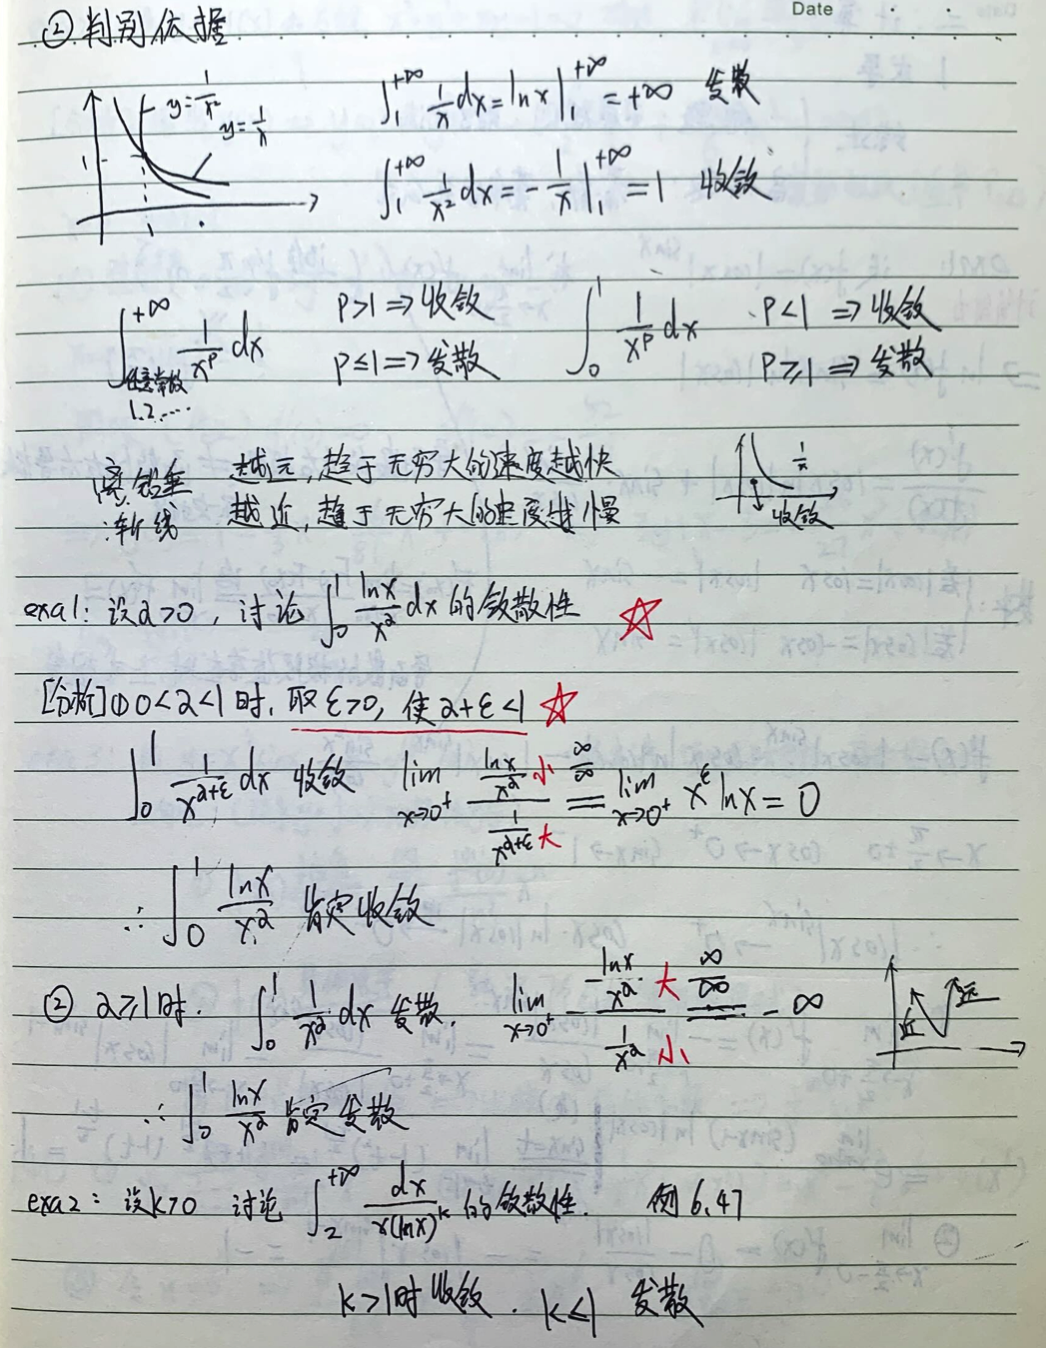 Date
② 判别依据
y=1/x² y=1/x 1 1
∫₁^{+∞} 1/x dx = ln x |₁^{+∞} = +∞ 发散
∫₁^{+∞} 1/x² dx = -1/x |₁^{+∞} = 1 收敛
∫_{任意常数 1.2.…}^{+∞} 1/x^p dx p>1 ⇒ 收敛 p≤1 ⇒ 发散
∫₀¹ 1/x^p dx p<1 ⇒ 收敛 p≥1 ⇒ 发散
离铅垂渐线 越远,趋于无穷大的速度越快
越近,趋于无穷大的速度越慢
1/x 收敛
exa1: 设α>0, 讨论 ∫₀¹ lnx/x^α dx 的敛散性 ☆
[分析] ① 0<α<1 时, 取 ε>0, 使 α+ε<1 ☆
∫₀¹ 1/x^{α+ε} dx 收敛 lim_{x→0⁺} (lnx/x^α 小)/(1/x^{α+ε} 大) =^{∞/∞} lim_{x→0⁺} x^ε lnx = 0
∴ ∫₀¹ lnx/x^α 肯定收敛
② α≥1时. ∫₀¹ 1/x^α dx 发散. lim_{x→0⁺} -(-lnx/x^α 大)/(1/x^α 小) =^{∞/∞} -∞
近 远
∴ ∫₀¹ lnx/x^α 肯定发散
exa2: 设k>0 讨论 ∫₂^{+∞} dx/(x(lnx)^k) 的敛散性. 例6.47
k>1时收敛. k≤1 发散